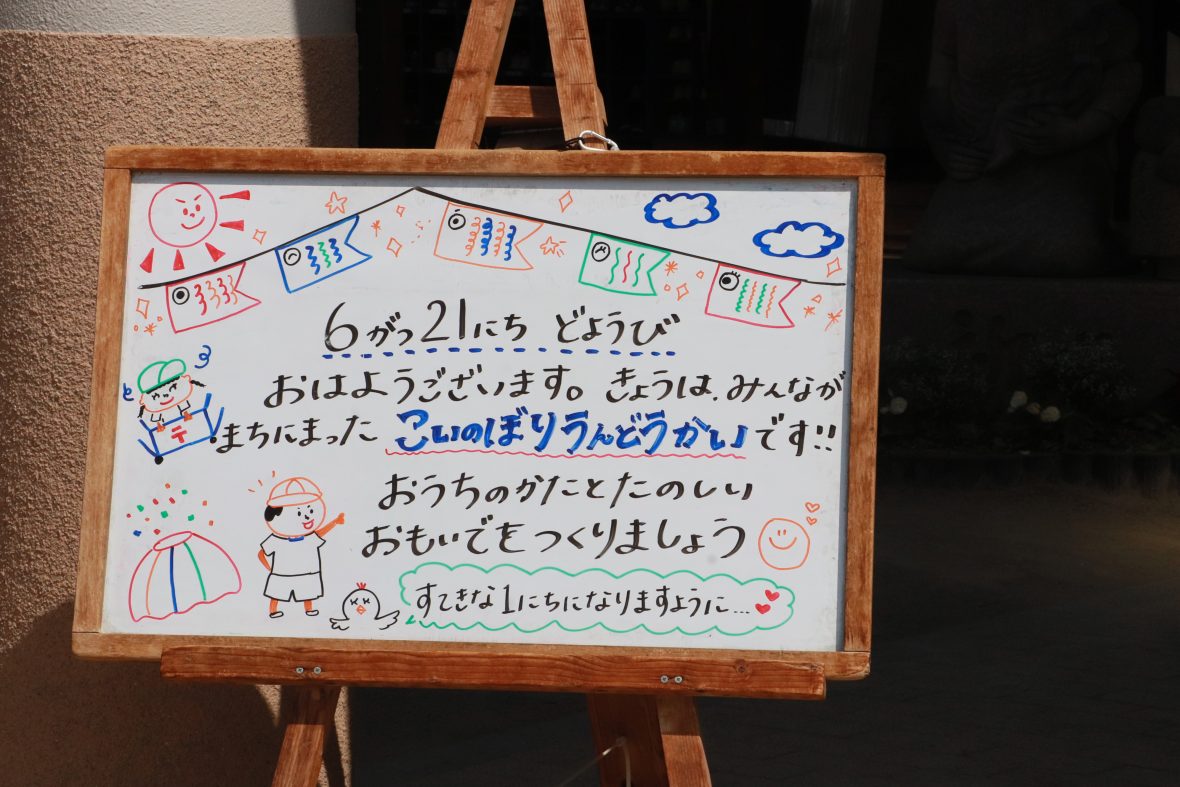 6がつ21にち どようび
おはようございます。きょうは、みんなが
まちにまった こいのぼりうんどうかいです!!
おうちのかたとたのしい
おもいでをつくりましょう
すてきな1にちになりますように...
〒